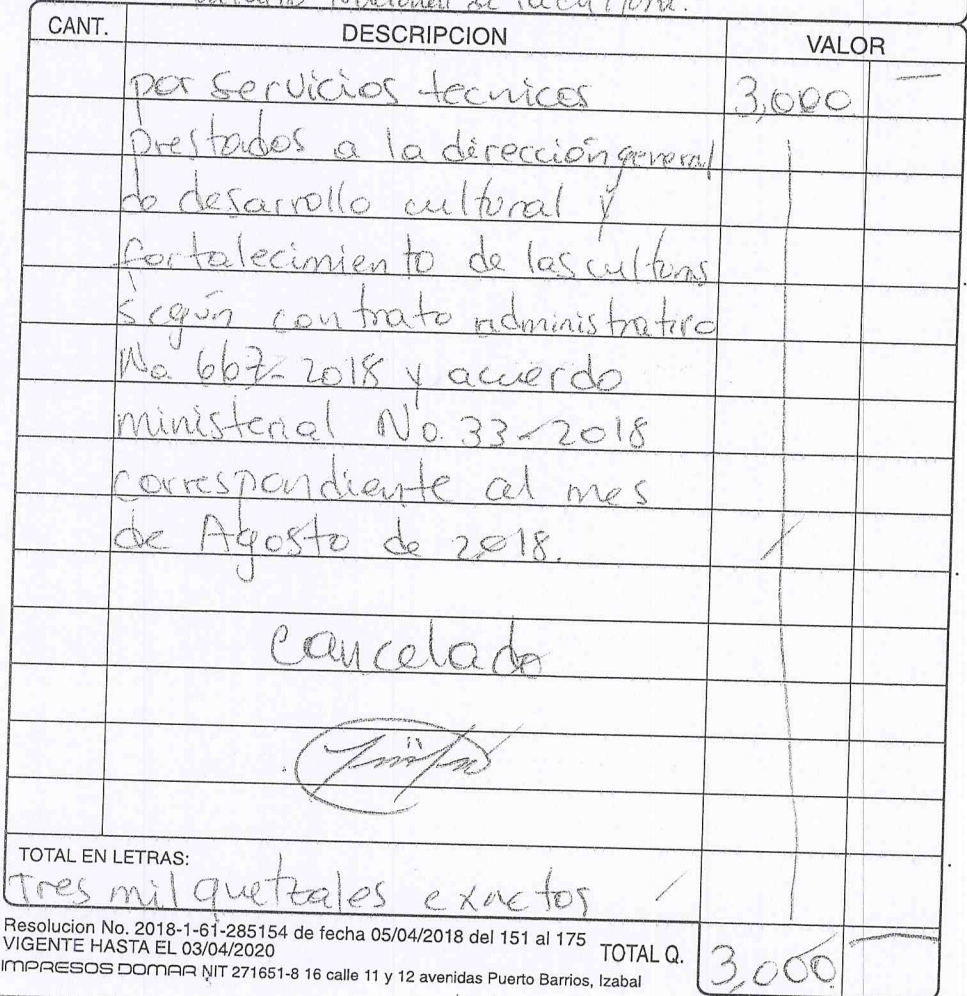 CANT. DESCRIPCION VALOR
por Servicios tecnicos 3,000 —
prestados a la dirección general
de desarrollo cultural y
fortalecimiento de las culturas
según contrato administrativo
No 667-2018 y acuerdo
ministerial No. 33-2018
correspondiente al mes
de Agosto de 2018.
Cancelado
TOTAL EN LETRAS:
Tres mil quetzales exactos
Resolucion No. 2018-1-61-285154 de fecha 05/04/2018 del 151 al 175
VIGENTE HASTA EL 03/04/2020
TOTAL Q. 3,000
IMPRESOS DOMAR NIT 271651-8 16 calle 11 y 12 avenidas Puerto Barrios, Izabal